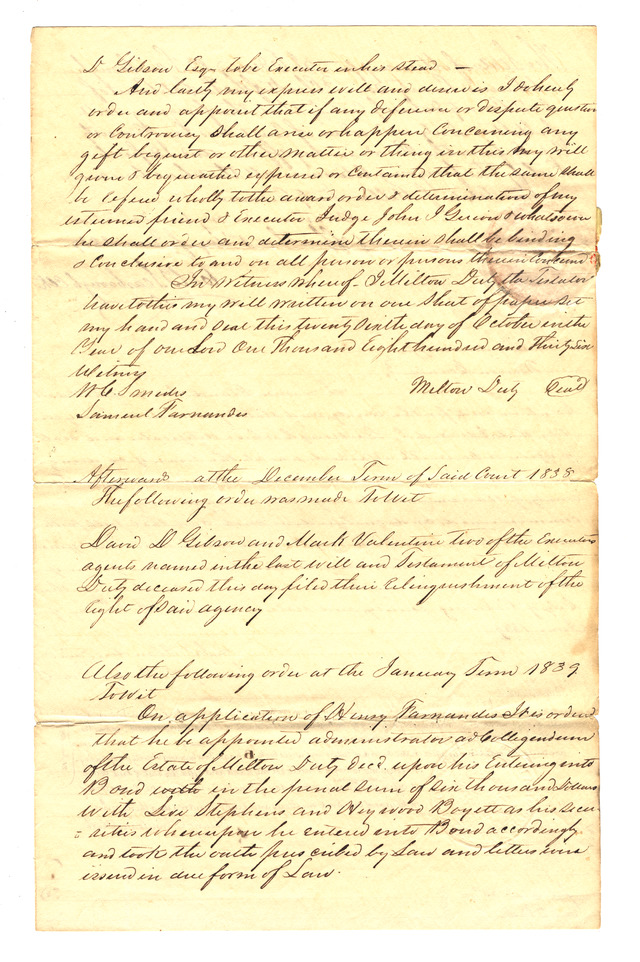 D Gibson Esqr to be Executor in his stead —
And lastly my express will and desire is I do hereby
order and appoint that if any deference or dispute question
or Controversy Shall arise or happen Concerning any
gift bequest or other matter or thing in this my will
given & bequeathed expressed or Contained that the same shall
be refered wholly to the award order & determination of my
esteemed friend & Executor Judge John I & whatsoever
he shall order and determine therein shall be binding
& Conclusive to and on all person or persons therein Concernd
In Witness whereof I Milton Duty the Testator
have to this my will written on one Sheat of paper set
my hand and seal this twenty sixth day of October in the
Year of our Lord One Thousand Eight hundred and thirty Six
Witness
W C Smedes Milton Duty Seal
Samuel Farnandes
Afterwards at the December Term of Said Court 1838
The following order was made Towit
David D Gibson and Mark Valentine two of the Executors
agents named in the last will and Testament of Milton
Duty deceased this day filed their relinquishment of the
right of said agency
Also the following order at the January Term 1839
Towit
On application of Henry Farnandes It is ordered
that he be appointed administrator ad Colligendum
of the Estate of Milton Duty decd. upon his Entering into
Bond with in the penal sum of six thousand Dollars
With Levi Stephens and Heywood Boyett as his secu
= sities whereupon he entered into Bond accordingly
and took the oath prescribed by Law and letters were
issued in due form of Law.